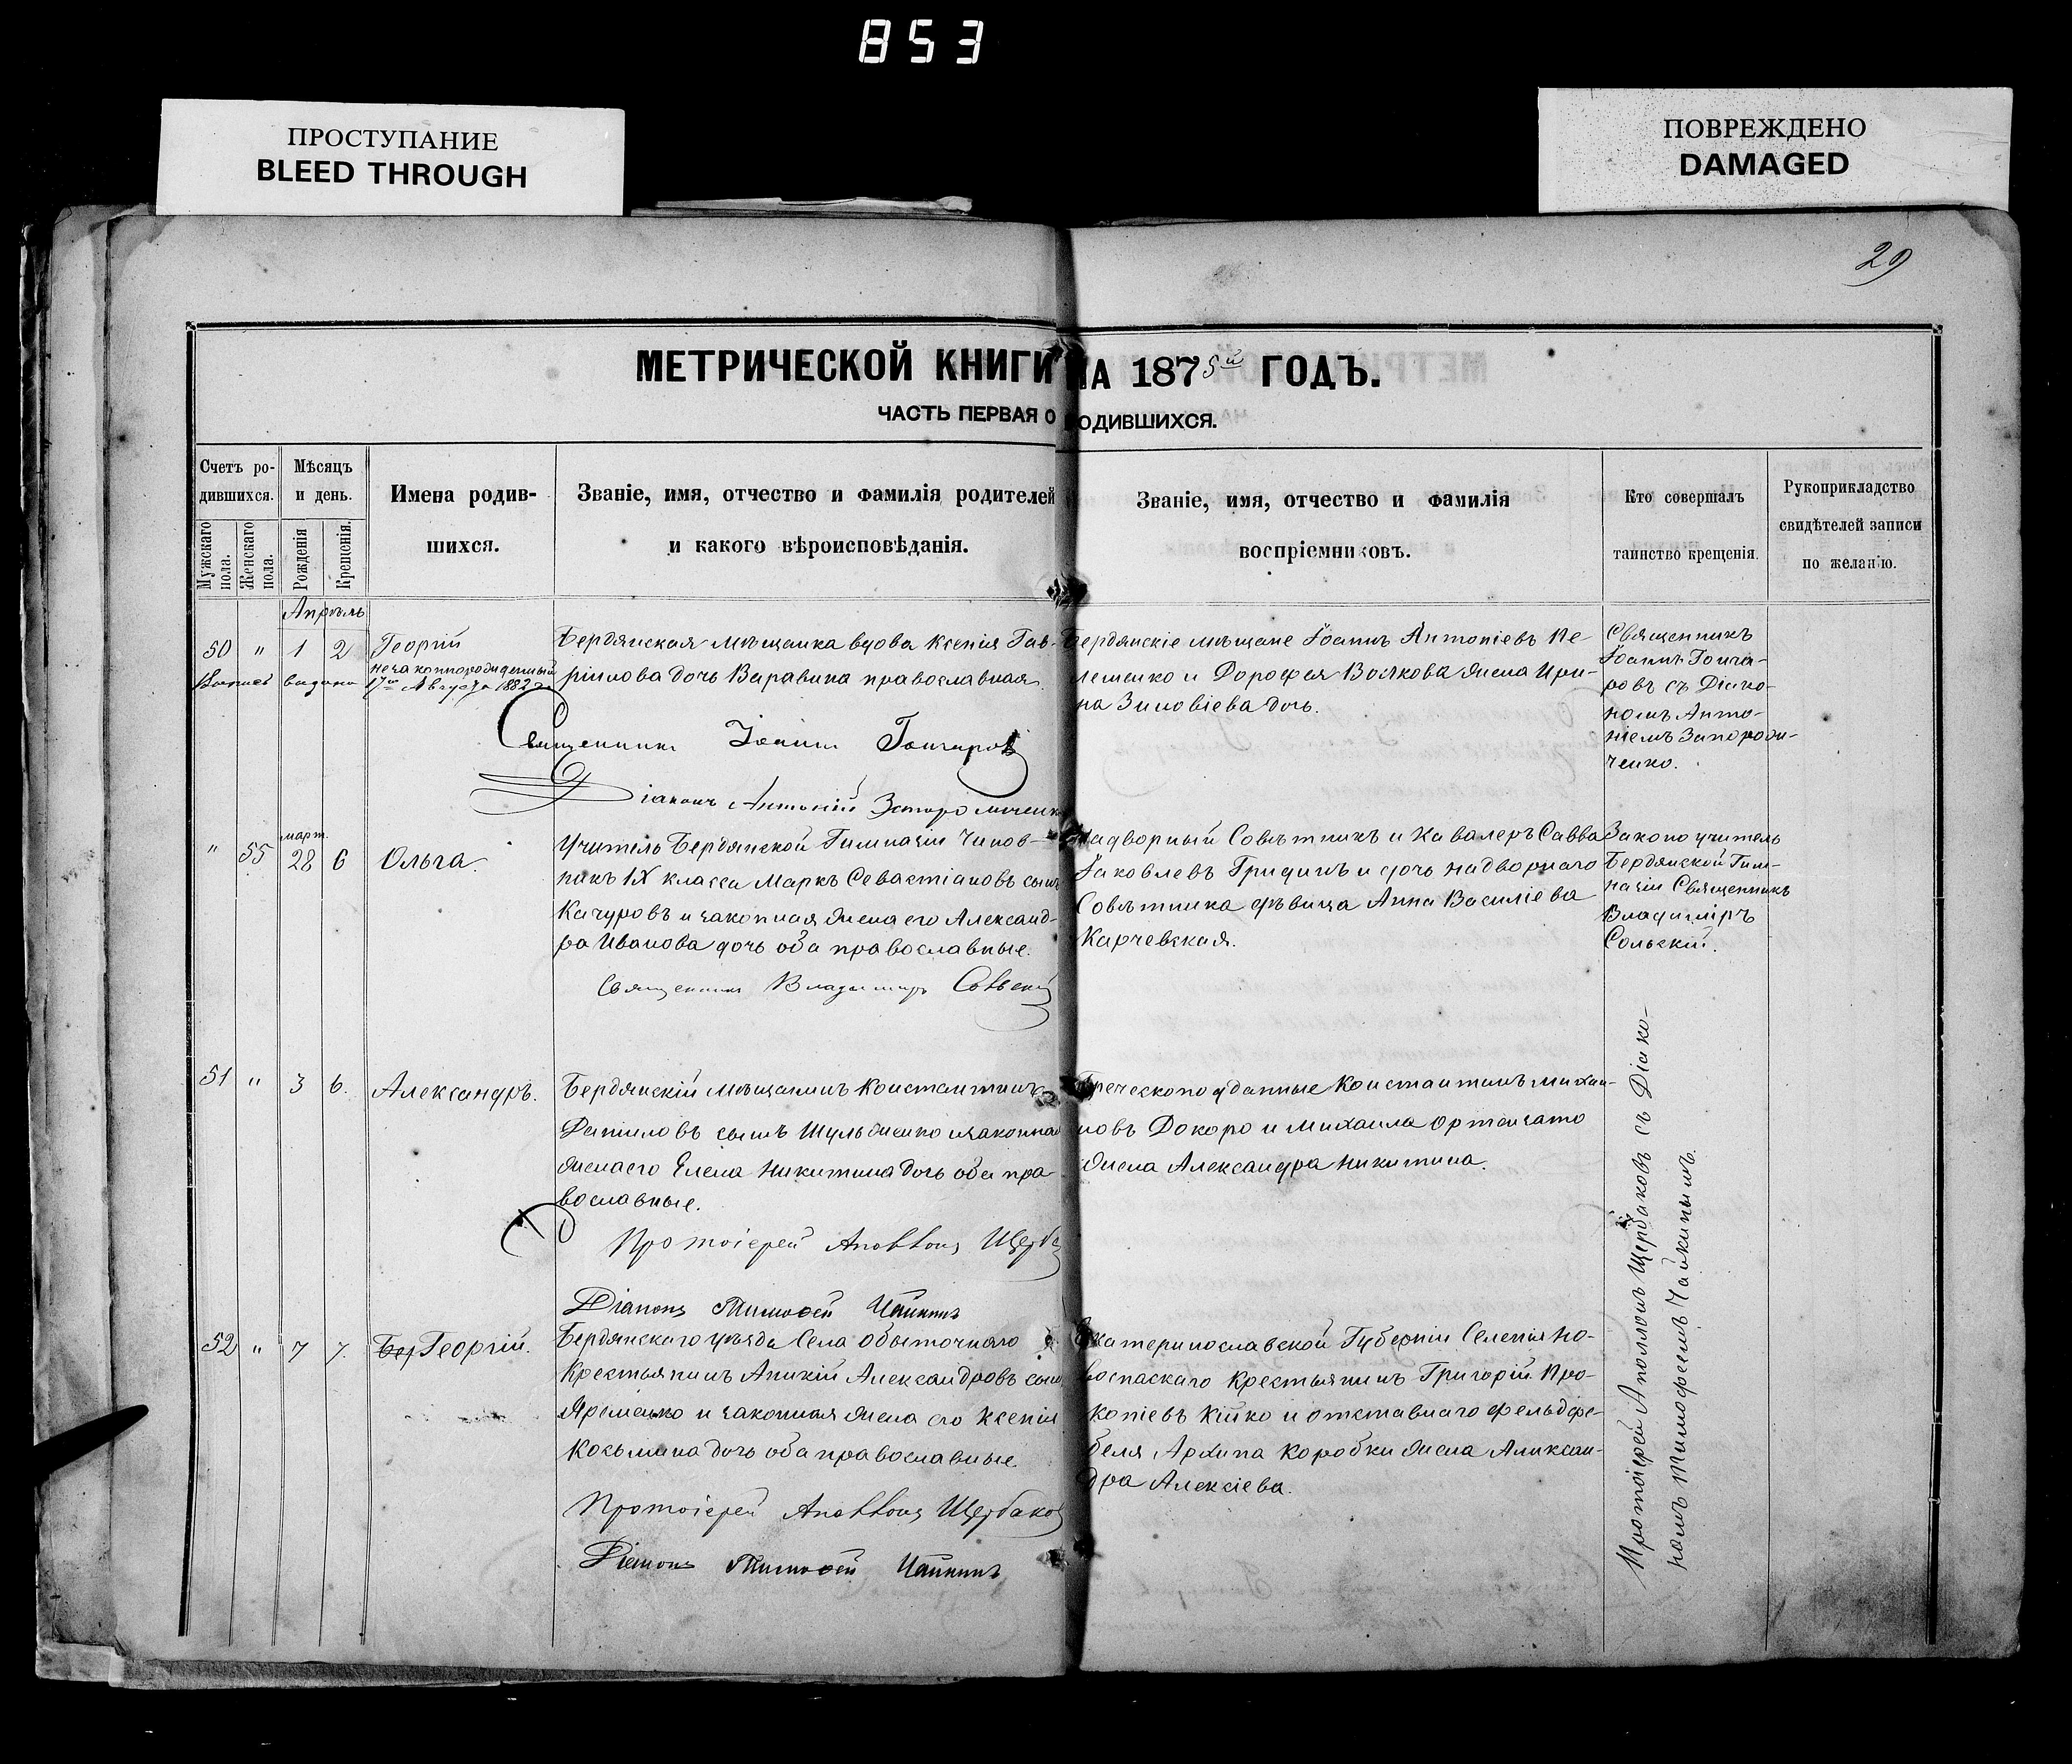 853
ПРОСТУПАНИЕ
BLEED THROUGH
ПОВРЕЖДЕНО
DAMAGED
29
МЕТРИЧЕСКОЙ КНИГИ НА 1875й ГОДЪ.
ЧАСТЬ ПЕРВАЯ О РОДИВШИХСЯ.
Счетъ ро-
дившихся.
Мужскаго пола.
Женскаго пола.
Мѣсяцъ
и день.
Рожденія
Крещенія.
Имена родив-
шихся.
Званіе, имя, отчество и фамилія родителей
и какого вѣроисповѣданія.
Званіе, имя, отчество и фамилія
воспріемниковъ.
Кто совершалъ
таинство крещенія.
Рукоприкладство
свидѣтелей записи
по желанію.
Апрѣль
50 " 1 2 Георгій
незаконнорожденный
выдана 17го Августа 1882 г.
Бердянская мѣщанка вдова Ксенія Гав-
ріилова дочь Варавина православная.
Священникъ Іоаннъ Гончаровъ
Діаконъ Антоній
Бердянскіе мѣщане Іоаннъ Антоніевъ Пе-
лешенко и Дорофея Волкова жена Ири-
на Зиновіева дочь.
Священникъ
Іоаннъ Гонча-
ровъ съ Діако-
номъ Анто-
ніемъ
ченко.
март.
" 55 28 6 Ольга.
Учитель Бердянской Гимназіи Чинов-
никъ IX класса Маркъ Севастіановъ сынъ
Качуровъ и законная жена его Александ-
ра Иванова дочь оба православные.
Священникъ Владимиръ Сольскій
Надворный Совѣтникъ и Кавалеръ Савва
Іаковлевъ Гридинъ и дочь надворнаго
Совѣтника дѣвица Анна Василіева
Карчевская.
Законоучитель
Бердянской Гим-
назіи Священникъ
Владиміръ
Сольскій.
51 " 3 6. Александръ.
Бердянскій мѣщанинъ Константинъ
Даниловъ сынъ Шульженко и законная
жена его Елена Никитина дочь оба пра-
вославные.
Протоіерей Аполлонъ Щерба
Діаконъ Тимофей Чайкинъ
Греческоподданные Константинъ Михаи-
ловъ Докоро и Михаила
жена Александра Никитина.
52 " 7 7. Бер Георгій.
Бердянскаго уѣзда Села Обыточнаго
Крестьянинъ Аникій Александровъ сынъ
Яременко и законная жена его Ксенія
Козьмина дочь оба православные.
Протоіерей Аполлонъ Щербаков
Діаконъ Тимофей Чайкинъ
Екатеринославской Губерніи Селенія Но-
воспаскаго Крестьянинъ Григорій Про-
копіевъ Кійко и отставнаго фельдфе-
беля Архипа Коробки жена Алексан-
дра Алексіева.
Протоіерей Аполлонъ Щербаковъ съ Діако-
номъ Тимофеемъ Чайкинымъ.